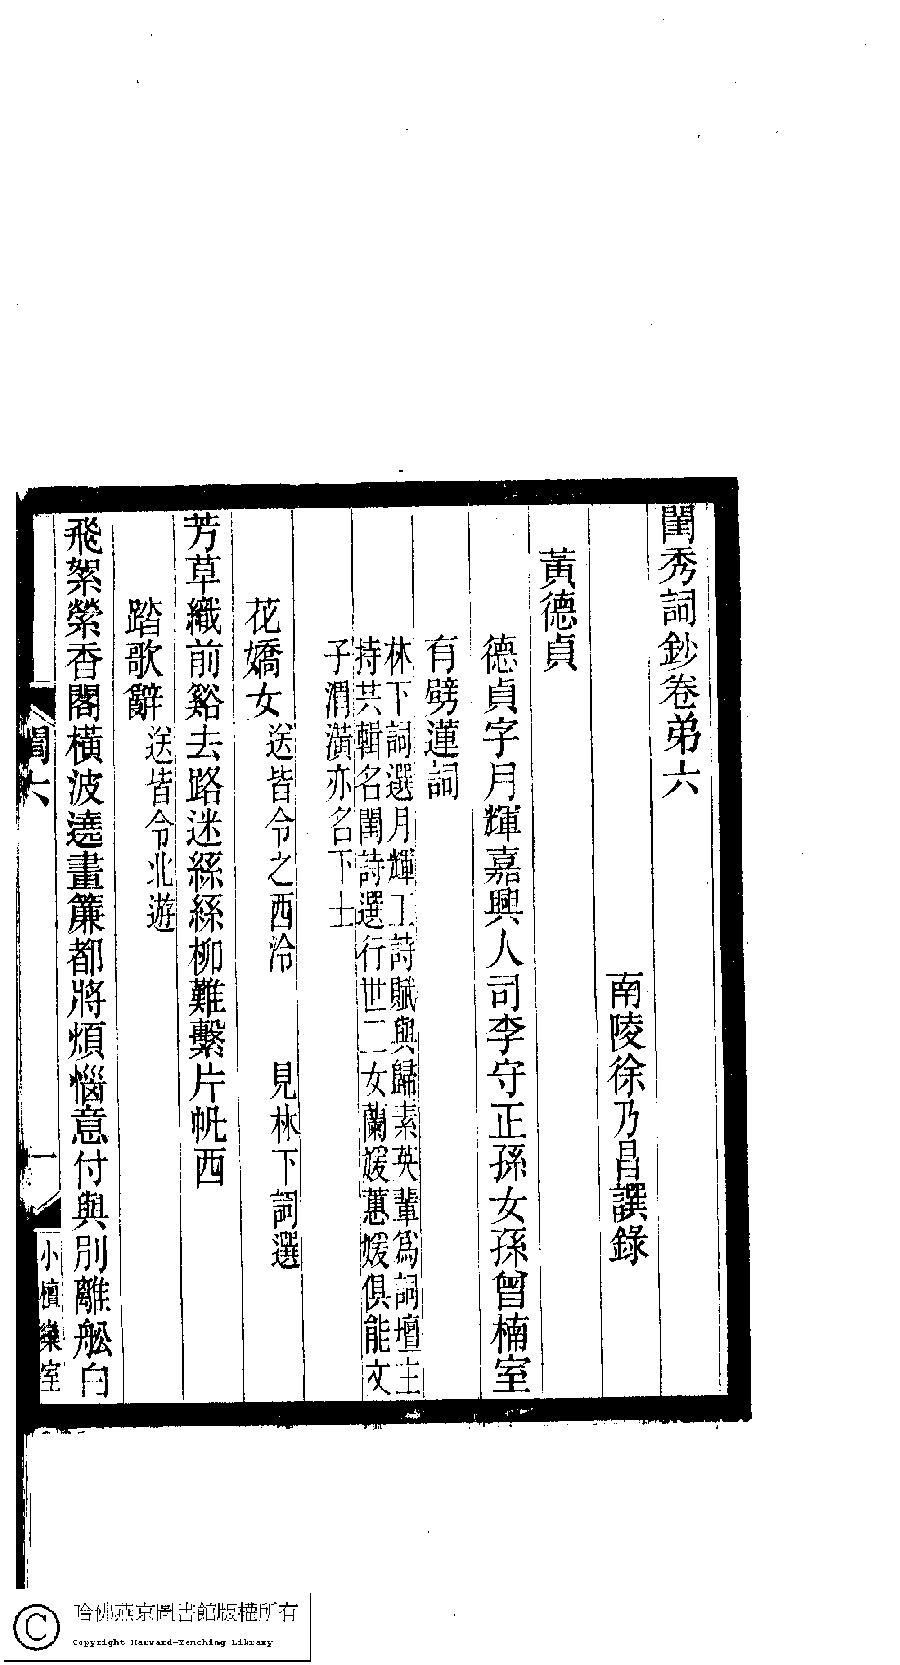 閨秀詞鈔卷弟六
南陵徐乃昌譔錄
黃德貞
德貞字月輝嘉興人司李守正孫女孫曾楠室
有劈蓮詞
林下詞選月輝工詩賦與歸素英輩爲詞壇主
持共輯名閨詩選行世二女蘭媛蕙媛俱能文
子渭潢亦名下士
花嬌女送皆令之西泠 見林下詞選
芳草織前谿去路迷絲絲柳難繫片帆西
踏歌辭送皆令北遊
飛絮縈香閣橫波遶畫簾都將煩惱意付與別離舩白
閨六
一
小檀欒室
哈佛燕京圖書館版權所有
Copyright Harvard-Yenching Library